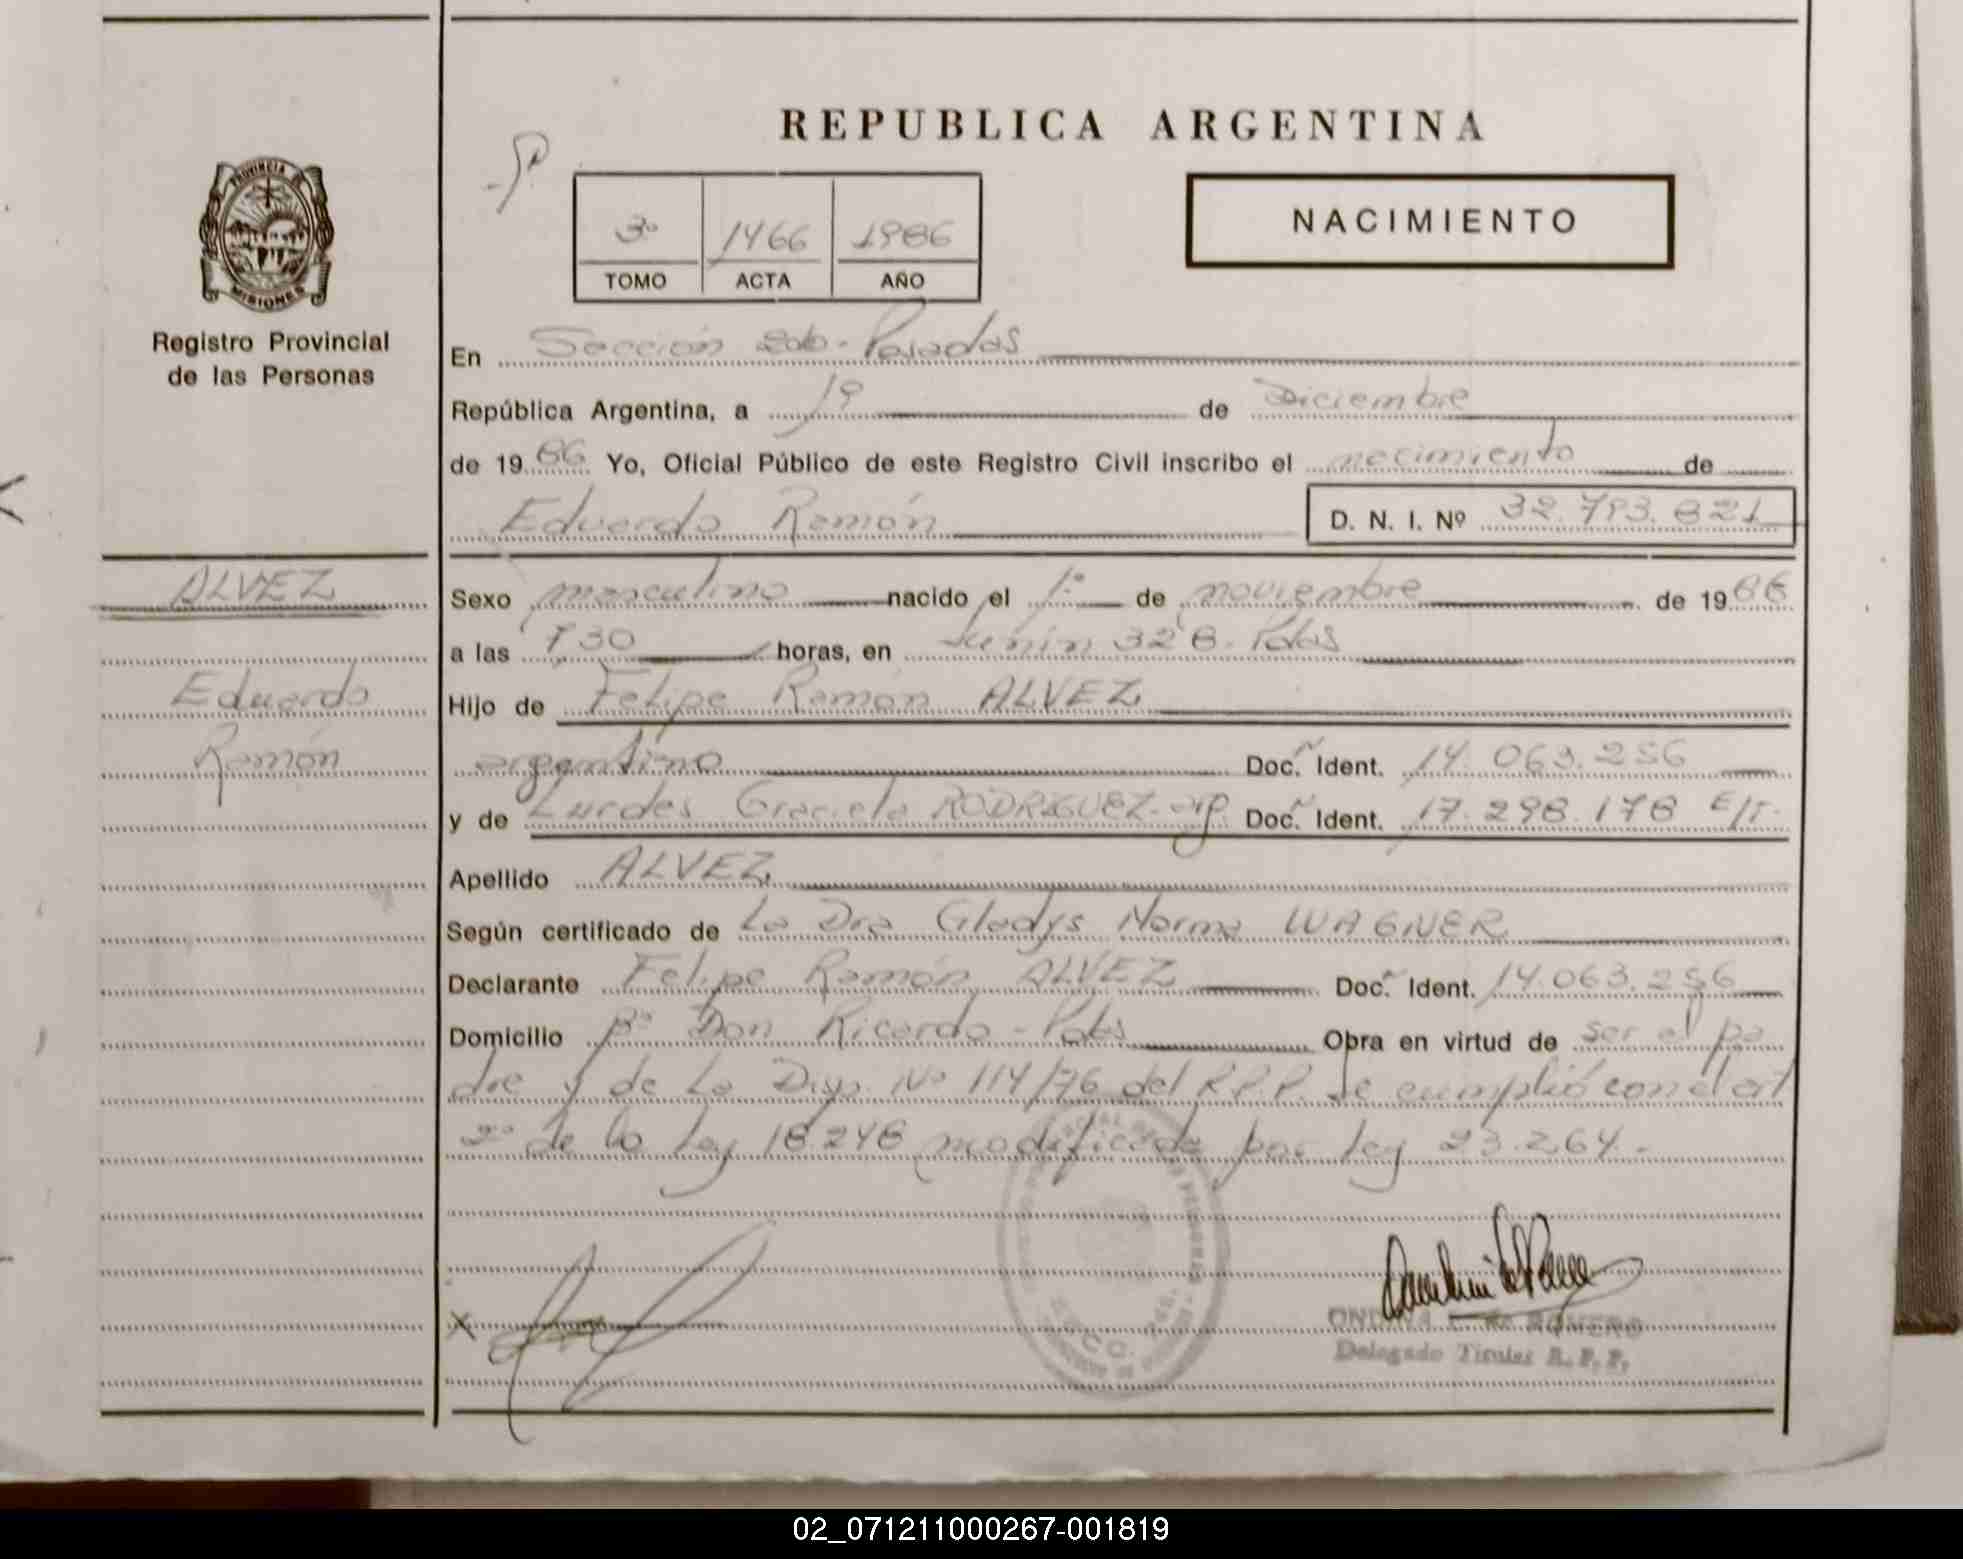 REPUBLICA ARGENTINA
PROVINCIA DE
MISIONES
Registro Provincial
de las Personas
3º 1466 1986
TOMO ACTA AÑO
NACIMIENTO
En Sección 2da - Posadas
República Argentina, a 19 de Diciembre
de 1986 Yo, Oficial Público de este Registro Civil inscribo el nacimiento de
Eduardo Ramón D. N. I. Nº 32.793.821
ALVEZ
Eduardo
Ramón
Sexo masculino nacido el 1º de noviembre de 1986
a las 730 horas, en Junín 328 - Pdas
Hijo de Felipe Ramón ALVEZ
argentino Doc. Ident. 14.063.256
y de Lurdes Graciela RODRIGUEZ - arg. Doc. Ident. 17.298.178 E/T.
Apellido ALVEZ
Según certificado de La Dra Gladys Norma WAGNER
Declarante Felipe Ramón ALVEZ Doc. Ident. 14.063.256
Domicilio Bº Don Ricardo - Pdas Obra en virtud de ser el pa
dre y de la Disp. Nº 114/76 del R.P.P. Se cumplió con el art
2º de la Ley 18.248 modificada por Ley 23.264.-
X
ROMERO
Delegado Titular R. P. P.
02_071211000267-001819